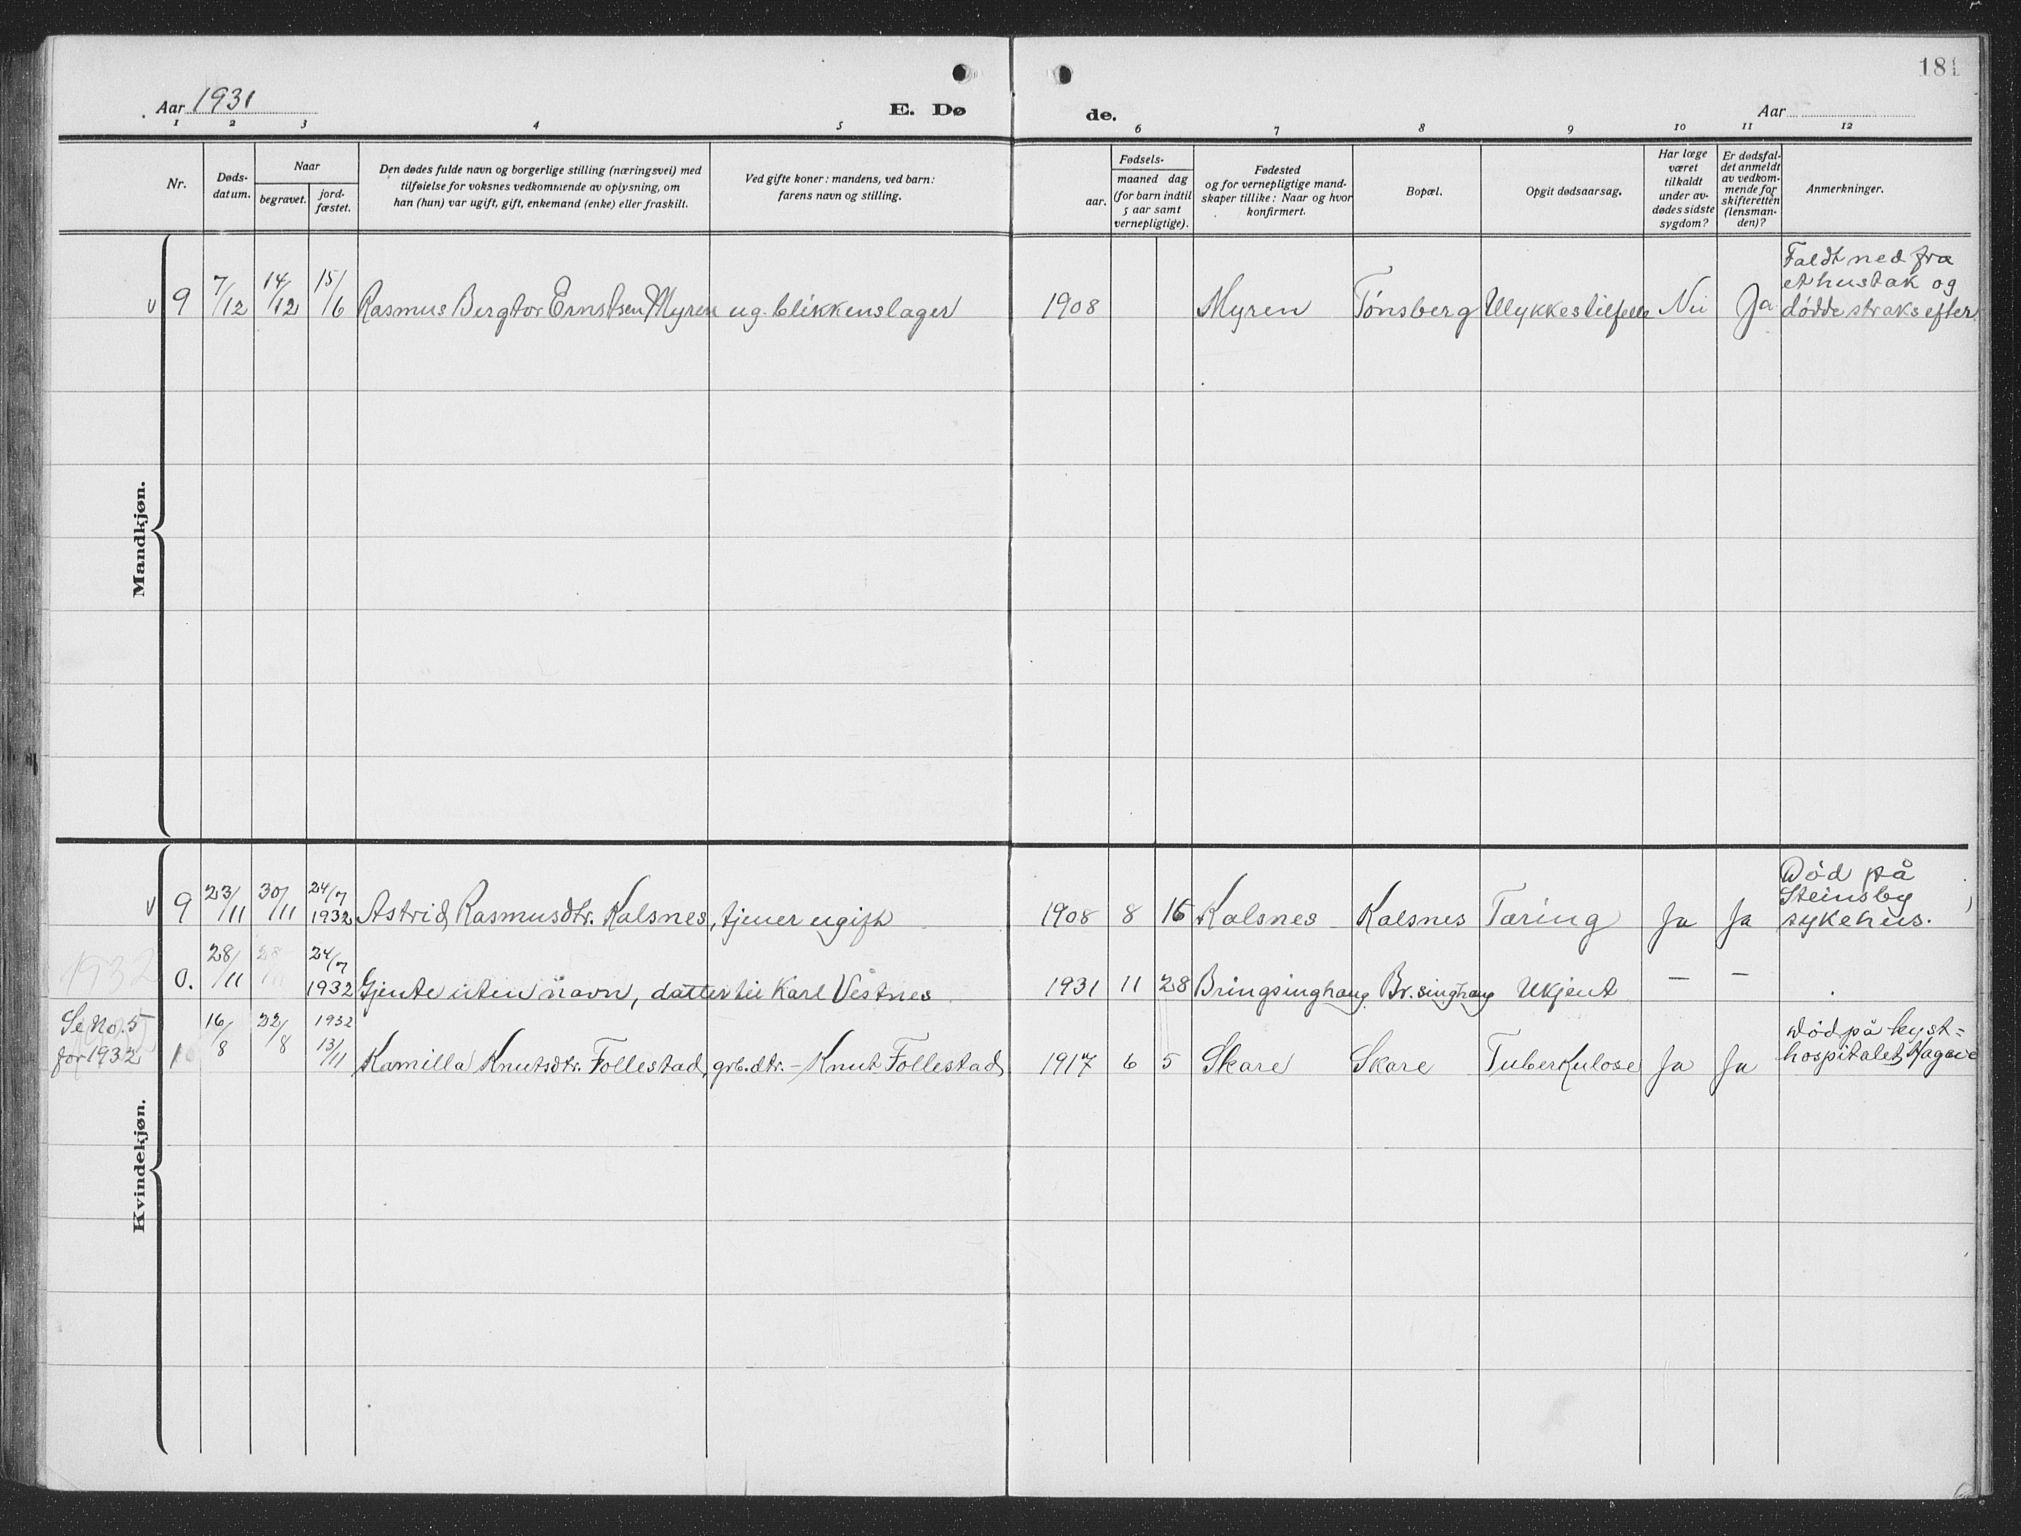 181
Aar 1931
E. Dø
de.
Aar
1 2 3 4 5 6 7 8 9 10 11 12
Nr.
Døds-
datum.
Naar
begravet.
jord-
fæstet.
Den dødes fulde navn og borgerlige stilling (næringsvei) med
tilføielse for voksnes vedkommende av oplysning, om
han (hun) var ugift, gift, enkemand (enke) eller fraskilt.
Ved gifte koner: mandens, ved barn:
farens navn og stilling.
Fødsels-
aar.
maaned dag
(for barn indtil
5 aar samt
vernepligtige).
Fødested
og for vernepligtige mand-
skaper tillike: Naar og hvor
konfirmert.
Bopæl.
Opgit dødsaarsag.
Har læge
været
tilkaldt
under av-
dødes sidste
sygdom?
Er dødsfal-
det anmeldt
av vedkom-
mende for
skifteretten
(lensman-
den)?
Anmerkninger.
Mandkjøn.
v 9 7/12 14/12 15/6 Rasmus Bergtor Ernstsen Myren ug. blikkenslager 1908 Myren Tønsberg Ulykkestilfelle Nei Ja
Faldt ned fra
et hustak og
dødde straks efter
Kvindekjøn.
v 9 23/11 30/11 24/7 1932 Astrid Rasmusdtr. Kalsnes, tjener ugift 1908 8 16 Kalsnes Kalsnes Tæring Ja Ja
Død på
Steinsby
sykehus.
1932
0. 28/11 28/11 24/7 1932 Gjente uten navn, datter til Karl Vestnes 1931 11 28 Bringsinghaug Br.singhaug Ukjent — —
Se No. 5
for 1932
10 16/8 22/8 1932 13/11 Kamilla Knutsdtr. Follestad, grb.dtr. – Knut Follestad 1917 6 5 Skare Skare Tuberkulose Ja Ja
Død på kyst=
hospitalet, Hagevik